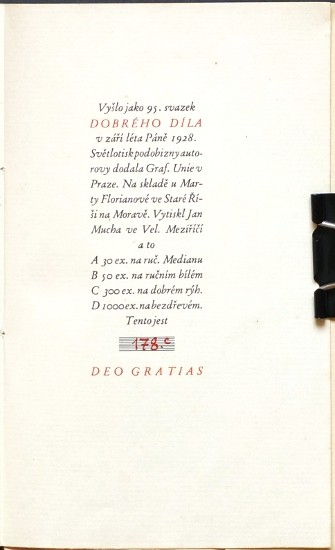 Vyšlo jako 95. svazek
DOBRÉHO DÍLA
v září léta Páně 1928.
Světlotisk podobizny auto-
rovy dodala Graf. Unie v
Praze. Na skladě u Mar-
ty Florianové ve Staré Ří-
ši na Moravě. Vytiskl Jan
Mucha ve Vel. Meziříčí
a to
A 30 ex. na ruč. Medianu
B 50 ex. na ručním bílém
C 300 ex. na dobrém rýh.
D 1000 ex. na bezdřevém.
Tento jest
178.c
DEO GRATIAS